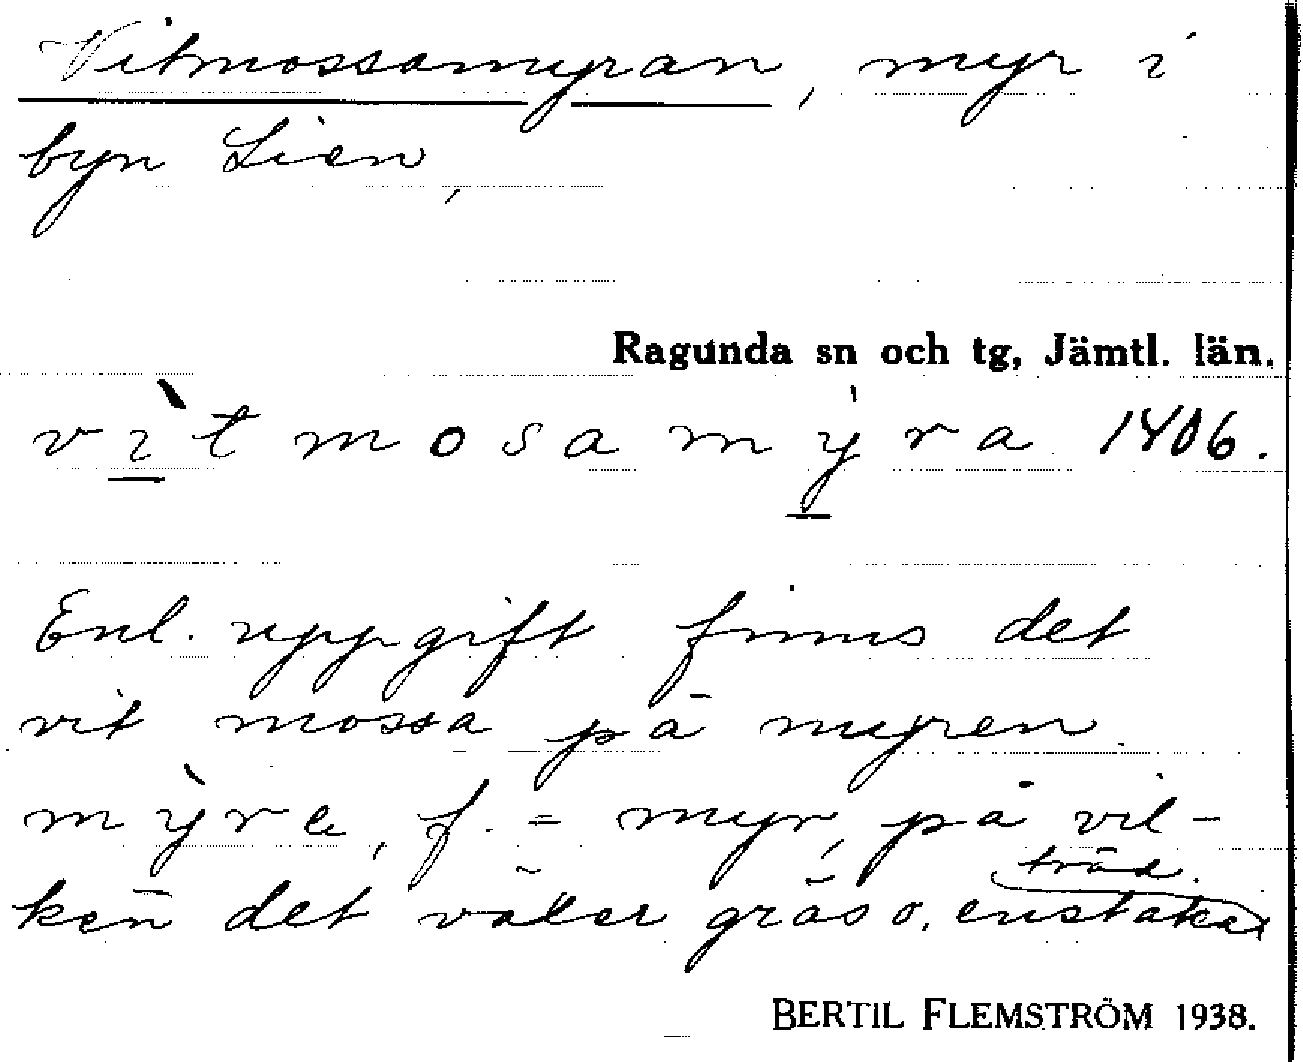 Vitmossamyran, myr i
byn Lien,
Ragunda sn och tg, Jämtl. län.
vı̀tmosamy̍ra 1406.
Enl. uppgift finns det
vit mossa på myren.
my̆̀re, f. = myr, på vil-
ken det växer gräs o. enstaka
träd.
BERTIL FLEMSTRÖM 1938.